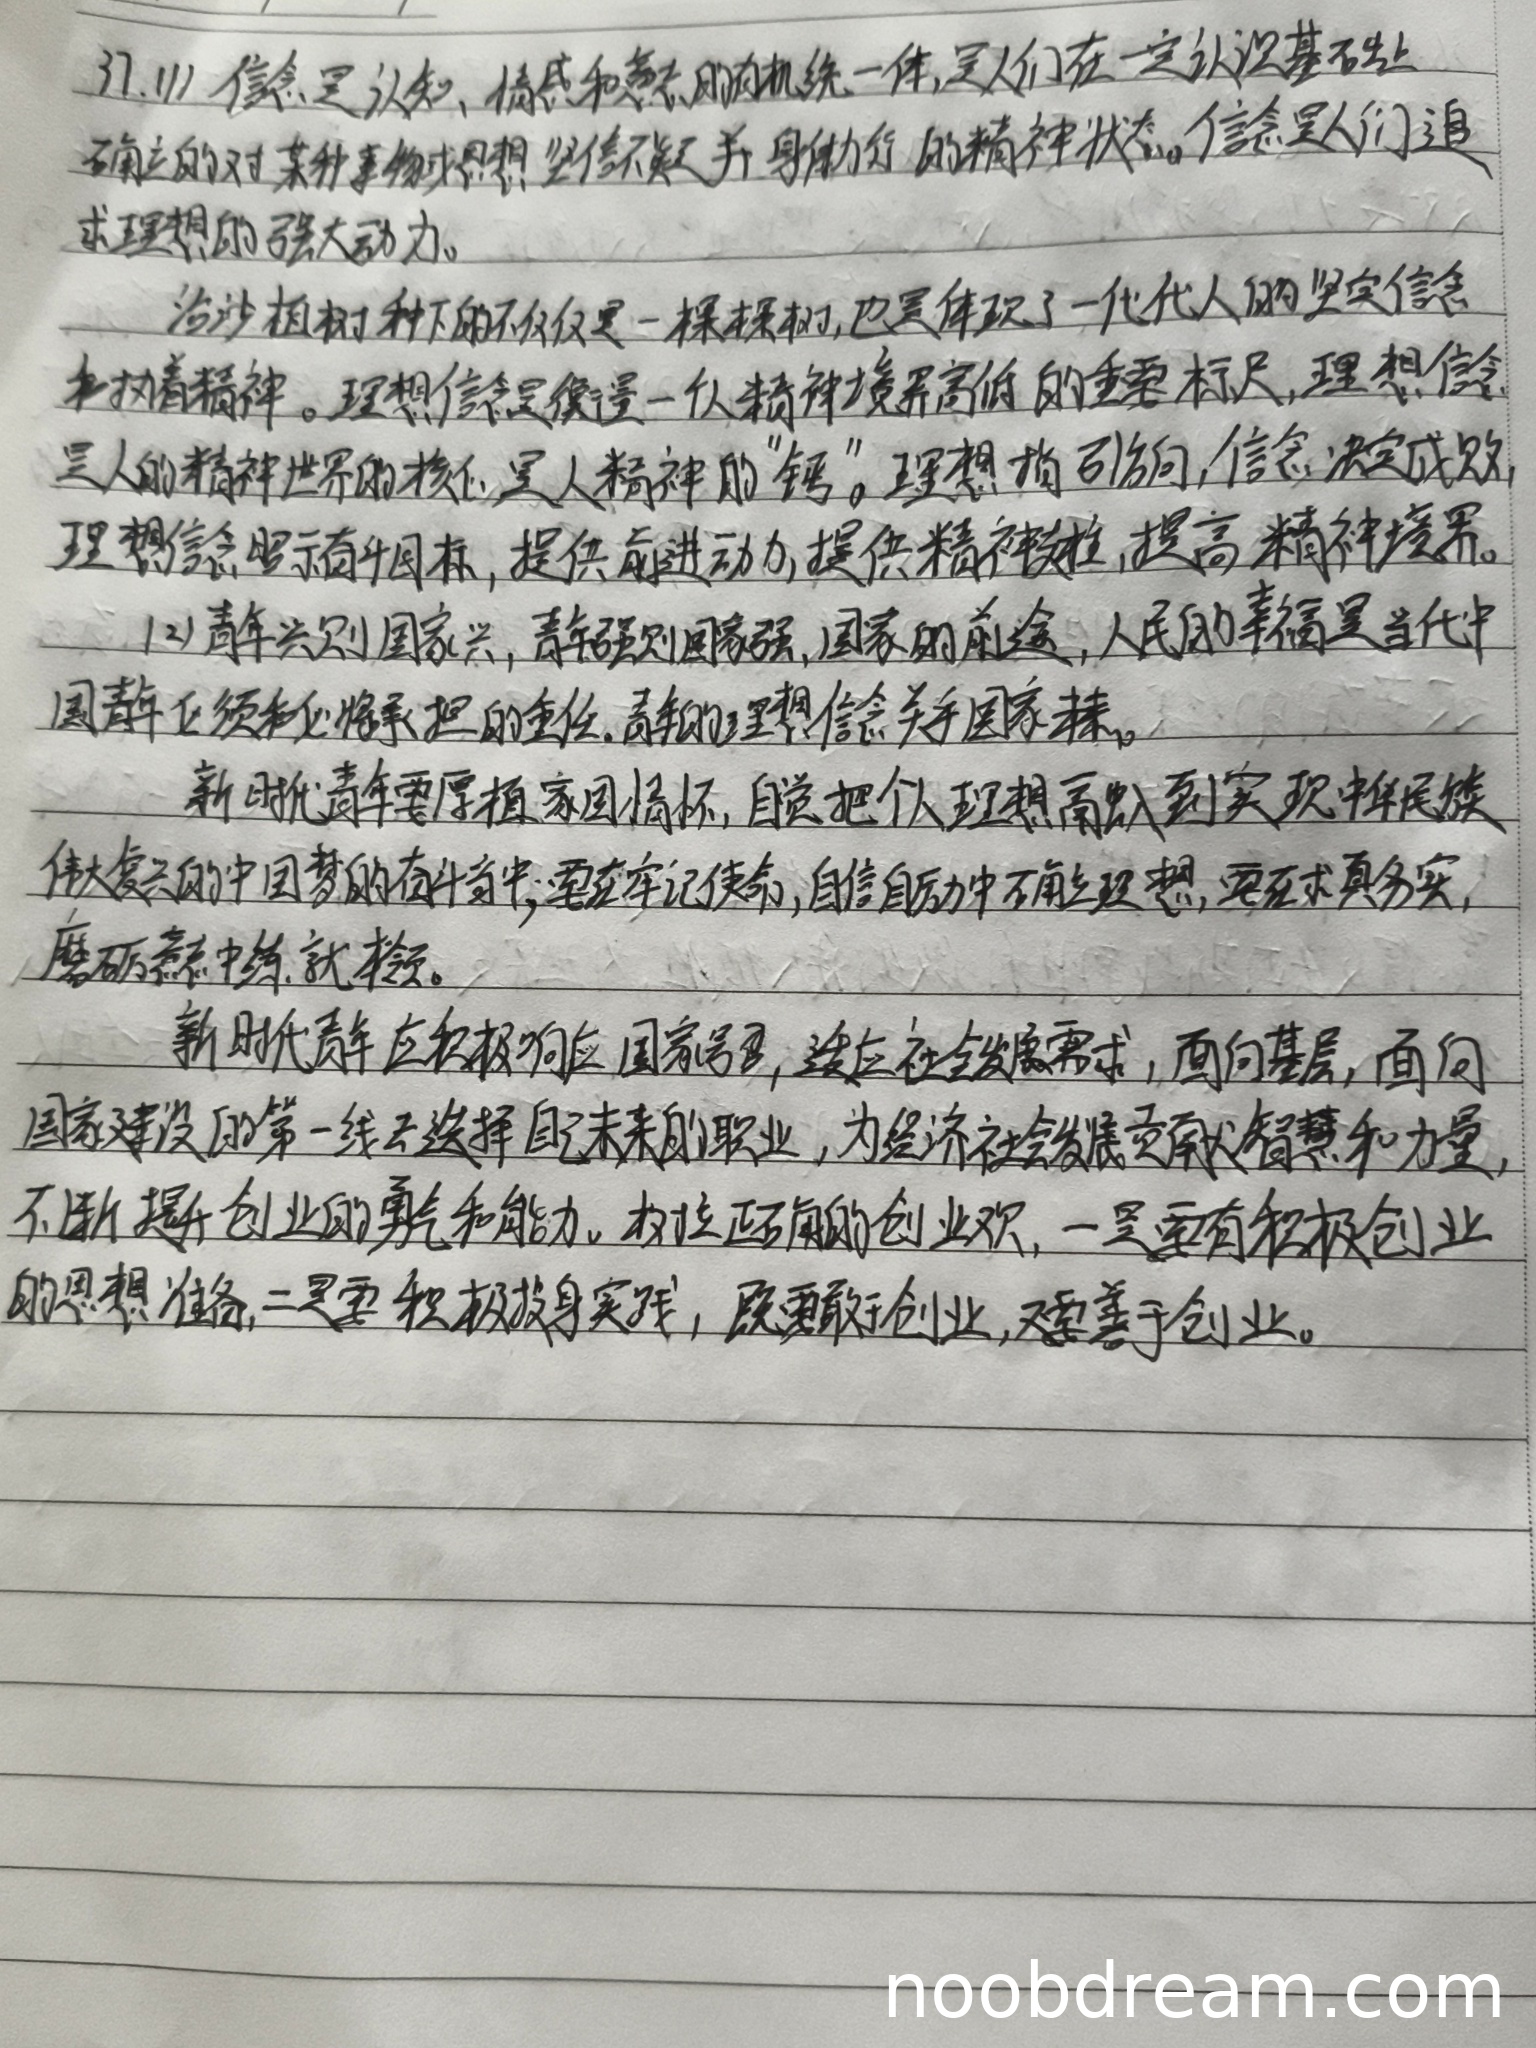 37.(1) 信念是认知、情感和意志的有机统一体,是人们在一定认识基础上
确立的对某种事物或思想坚信不疑并身体力行的精神状态。信念是人们追
求理想的强大动力。
治沙植树种下的不仅仅是一棵棵树,也是体现了一代代人的坚定信念
和执着精神。理想信念是衡量一个人精神境界高低的重要标尺,理想信念
是人的精神世界的核心,是人精神的“钙”。理想指引方向,信念决定成败,
理想信念昭示奋斗目标,提供前进动力,提供精神支柱,提高精神境界。
(2)青年兴则国家兴,青年强则国家强,国家的前途,人民的幸福是当代中
国青年必须和必将承担的重任。青年的理想信念关乎国家未来。
新时代青年要厚植家国情怀,自觉把个人理想融入到实现中华民族
伟大复兴的中国梦的奋斗当中;要在牢记使命,自信自励中确立理想,要在求真务实,
磨砺意志中练就本领。
新时代青年应积极响应国家号召,适应社会发展需求,面向基层,面向
国家建设的第一线去选择自己未来的职业,为经济社会发展贡献智慧和力量,
不断提升创业的勇气和能力。树立正确的创业观,一是要有积极创业
的思想准备,二是要积极投身实践,既要敢于创业,又要善于创业。
noobdream.com